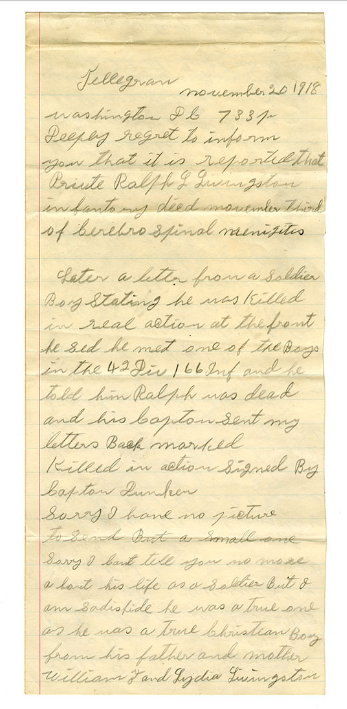 Tellegram
november 20 1918
washington D C 733 p
Deeply regret to inform
you that it is reported that
Private Ralph L Livingston
infantory died november third
of Cerebro Spinal menigites
Later a letter from a Soldier
Boy Stating he was Killed
in real action at the front
he sed he met one of the Boys
in the 42 Div 166 Inf and he
told him Ralph was dead
and his Capton Sent my
letters Back marked
Killed in action Signed By
Capton
Sorry I have no picture
to send But a Small one
Sorry I cant tell you no more
a bout his life as a Soldier But I
am Sadisfide he was a true one
as he was a true Christian Boy
from his father and mother
William T and Lydia Livingston